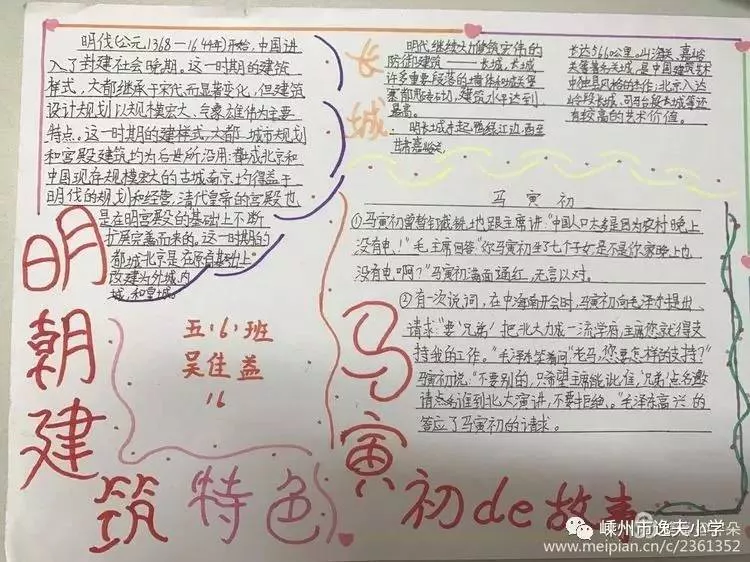 明代(公元1368—1644年)开始,中国进
入了封建社会晚期。这一时期的建筑
样式,大都继承于宋代而显著变化,但建筑
设计规划以规模宏大、气象雄伟为主要
特点。这一时期的建样式,大都城市规划
和宫殿建筑均为后世所沿用:都城北京和
中国现存规模宏大的古城南京,均得益于
明代的规划和经营,清代皇帝的宫殿也
是在明宫殿的基础上不断
扩展完善而来的。这一时期的
都城北京是在原有基础上
改建为外城、内
城、和皇城
长
城
明代,继续大力修筑宏伟的
防御建筑——长城,长城
许多重要段落的墙体和城关堡
寨都用砖砌,建筑水平达到
最高。
明长城东起鸭绿江边,西至
甘肃嘉峪关
长达5660公里。山海关、嘉峪
关等著名关城,是中国建筑艺术
中独具风格的杰作;北京八达
岭段长城、司马台段长城等还
有较高的艺术价值。
马寅初
①马寅初曾暂钉截铁地跟主席讲:“中国人口太多是因为农村晚上
没有电!”毛主席回答:“你马寅初生了七个子女是不是你家晚上也
没有电啊?”马寅初满面通红,无言以对。
②有一次说词,在中海南开会时,马寅初向毛泽东提出
请求:“要兄弟把北大办成一流学府,主席您就得支
持我的工作。”毛泽东笑着问“老马,您要怎样的支持?”
马寅初说:“不要别的,只希望主席能批准,兄弟点名邀
请点谁到北大演讲,不要拒绝。”毛泽东高兴的
答应了马寅初的请求。
五(6)班
吴佳益
16
明朝建筑特色
马寅初de故事
嵊州市逸夫小学
www.meipian.cn/c/2361352